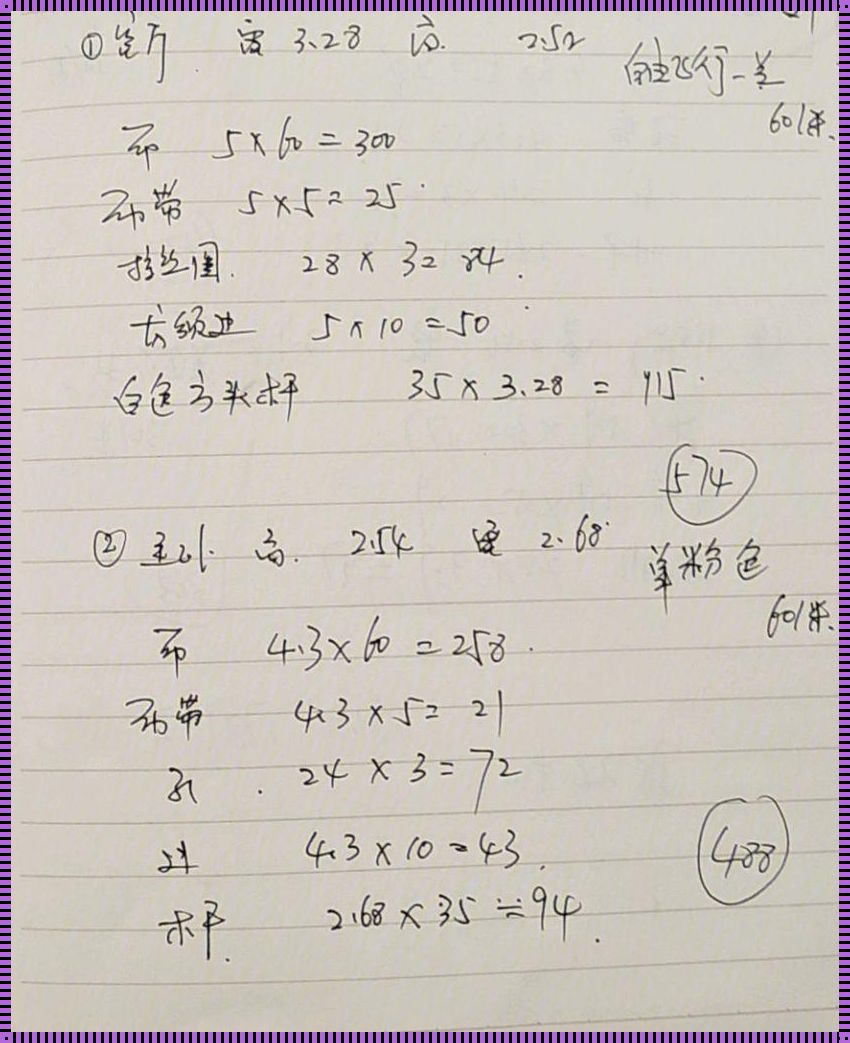 ① 客厅 宽 3.28 高 2.52
自由飞行-兰
60/米
布 5×60=300
布带 5×5=25
拉丝圈 28×3=84
长须边 5×10=50
白色方头杆 35×3.28=115
574
② 主卧 高 2.54 宽 2.68
单粉色
60/米
布 4.3×60=258
布带 4.3×5=21
孔 24×3=72
边 4.3×10=43
488
杆 2.68×35≒94